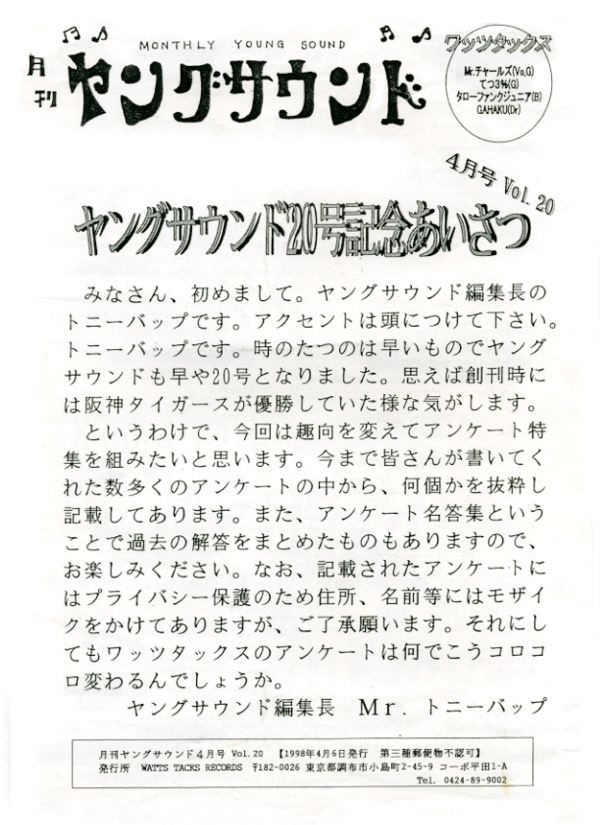 MONTHLY YOUNG SOUND
月刊
ヤングサウンド
ワッツタックス
Mr.チャールズ(Vo,G)
てつ3%(G)
タローファンクジュニア(B)
GAHAKU(Dr)
4月号 Vol. 20
ヤングサウンド20号記念あいさつ
みなさん、初めまして。ヤングサウンド編集長の
トニーバップです。アクセントは頭につけて下さい。
トニーバップです。時のたつのは早いものでヤング
サウンドも早や20号となりました。思えば創刊時に
は阪神タイガースが優勝していた様な気がします。
というわけで、今回は趣向を変えてアンケート特
集を組みたいと思います。今まで皆さんが書いてく
れた数多くのアンケートの中から、何個かを抜粋し
記載してあります。また、アンケート名答集という
ことで過去の解答をまとめたものもありますので、
お楽しみください。なお、記載されたアンケートに
はプライバシー保護のため住所、名前等にはモザイ
クをかけてありますが、ご了承願います。それにし
てもワッツタックスのアンケートは何でこうコロコ
ロ変わるんでしょうか。
ヤングサウンド編集長 Mr. トニーバップ
月刊ヤングサウンド4月号 Vol.20 【1998年4月6日発行 第三種郵便物不認可】
発行所 WATTS TACKS RECORDS 〒182-0026 東京都調布市小島町2-45-9 コーポ平田1-A
Tel. 0424-89-9002